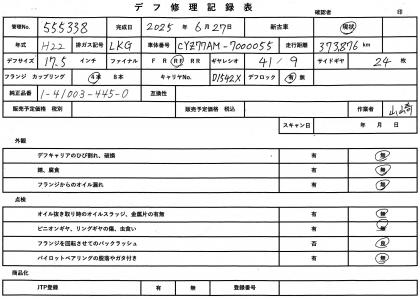 デフ修理記録表
確認者 印
管理No. 555338 完成日 2025年 6月27日 新古車 現状
年式 H22 排ガス記号 LKG 車体番号 CYZ77AM-7000055 走行距離 373,876 km
デフサイズ 17.5 インチ ファイナル F R RF RR ギヤレシオ 41/9 サイドギヤ 24 枚
フランジ カップリング 4本 8本 キャリヤNo. D1542X デフロック 有 無
純正品番 1-41003-445-0 互換性
販売予定価格 税別 販売予定価格 税込 作業者 山崎
スキャン日 年 月 日
外観
デフキャリアのひび割れ、破損 有 無
錆、腐食 有 無
フランジからのオイル漏れ 有 無
点検
オイル抜き取り時のオイルスラッジ、金属片の有無 有 無
ピニオンギヤ、リングギヤの傷、虫食い 有 無
フランジを回転させてのバックラッシュ 否 良
パイロットベアリングの脱落やガタ付き 有 無
商品化
JTP登録 有 無 登録番号